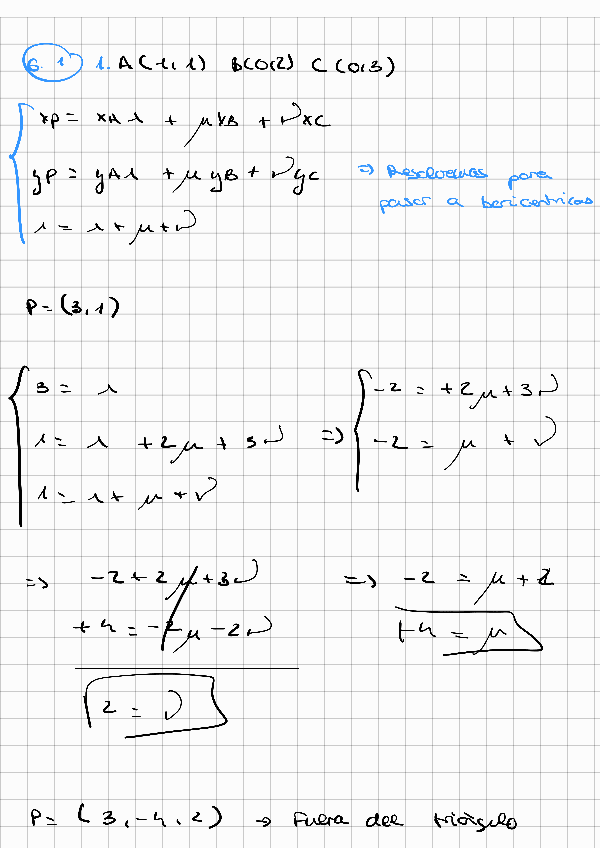 6.1 1. A(1,1) B(0,2) C(0,3)
xp = xA λ + μ xB + ν xC
yp = yA λ + μ yB + ν yC ⇒ Resolvemos para
pasar a baricentricas
1 = λ + μ + ν
P = (3,1)
3 = λ ⇒ -2 = +2μ + 3ν
1 = λ + 2μ + 3ν -2 = μ + ν
1 = λ + μ + ν
⇒ -2 + 2μ + 3ν ⇒ -2 = μ + 2
+4 = -2μ - 2ν +4 = μ
2 = ν
P = (3, -4, 2) → Fuera del triángulo